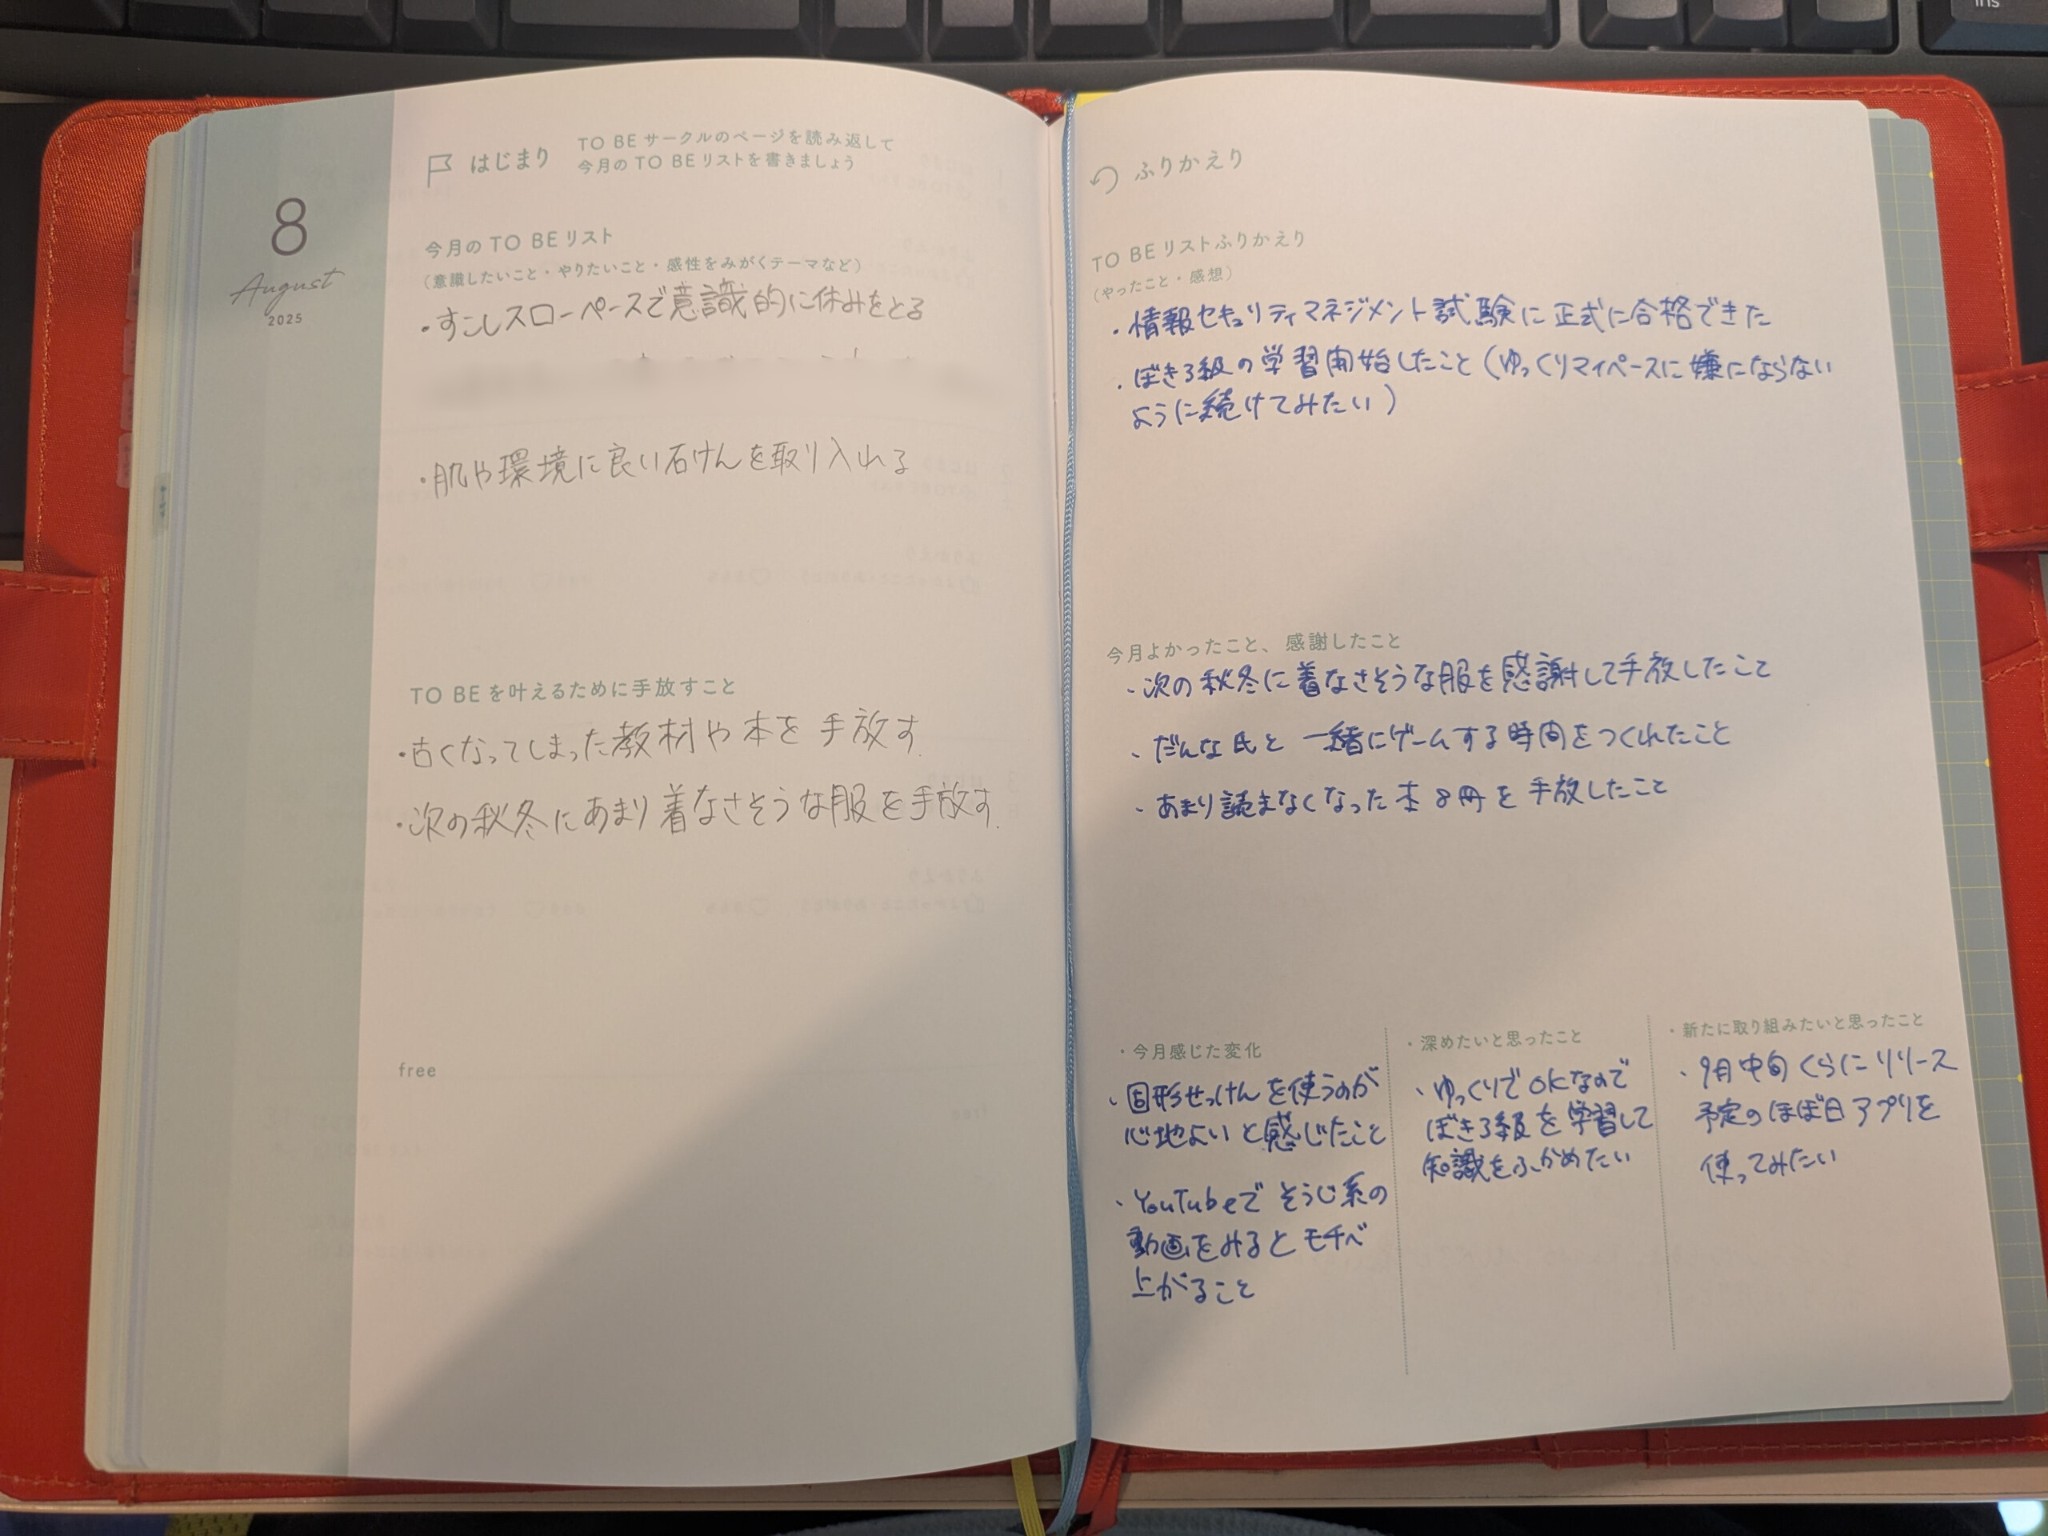 8
August
2025
はじまり
TO BEサークルのページを読み返して
今月のTO BEリストを書きましょう
今月のTO BEリスト
(意識したいこと・やりたいこと・感性をみがくテーマなど)
・すこしスローペースで意識的に休みをとる
・肌や環境に良い石けんを取り入れる
TO BEを叶えるために手放すこと
・古くなってしまった教材や本を手放す.
・次の秋冬にあまり着なさそうな服を手放す.
free
ふりかえり
TO BEリストふりかえり
(やったこと・感想)
・情報セキュリティマネジメント試験に正式に合格できた
・ぼき3級の学習開始したこと(ゆっくりマイペースに嫌にならない
ように続けてみたい)
今月よかったこと、感謝したこと
・次の秋冬に着なさそうな服を感謝して手放したこと
・だんな氏と一緒にゲームする時間をつくれたこと
・あまり読まなくなった本8冊を手放したこと
・今月感じた変化
・固形せっけんを使うのが
心地よいと感じたこと
・YouTubeでそうじ系の
動画をみるとモチベ
上がること
・深めたいと思ったこと
・ゆっくりでOKなので
ぼき3級を学習して
知識をふかめたい
・新たに取り組みたいと思ったこと
・9月中旬くらいにリリース
予定のほぼ日アプリを
使ってみたい
ins